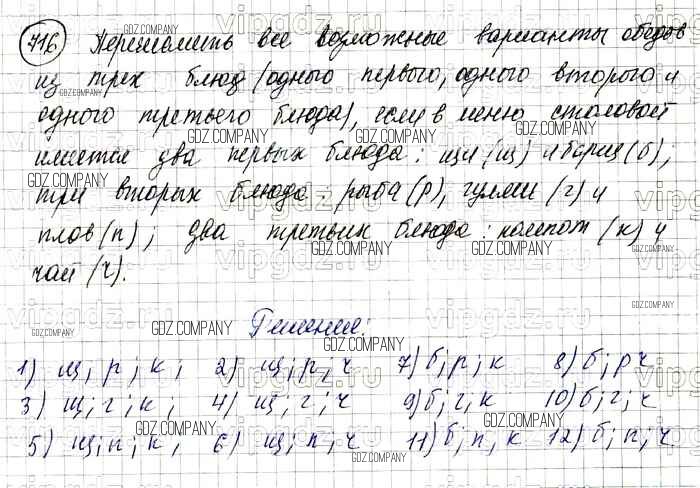 716 Перечислить все возможные варианты обедов
из трех блюд (одного первого, одного второго и
одного третьего блюда), если в меню столовой
имеется два первых блюда: щи (щ) и борщ (б);
три вторых блюда: рыба (р), гуляш (г) и
плов (п); два третьих блюда: компот (к) и
чай (ч).
Решение:
1) щ; р; к; 2) щ; р; ч 7) б; р; к 8) б; р ч
3) щ; г; к; 4) щ; г; ч 9) б; г; к 10) б; г; ч
5) щ; п; к; 6) щ; п; ч 11) б; п; к 12) б; п; ч
GDZ.COMPANY
vipgdz.ru